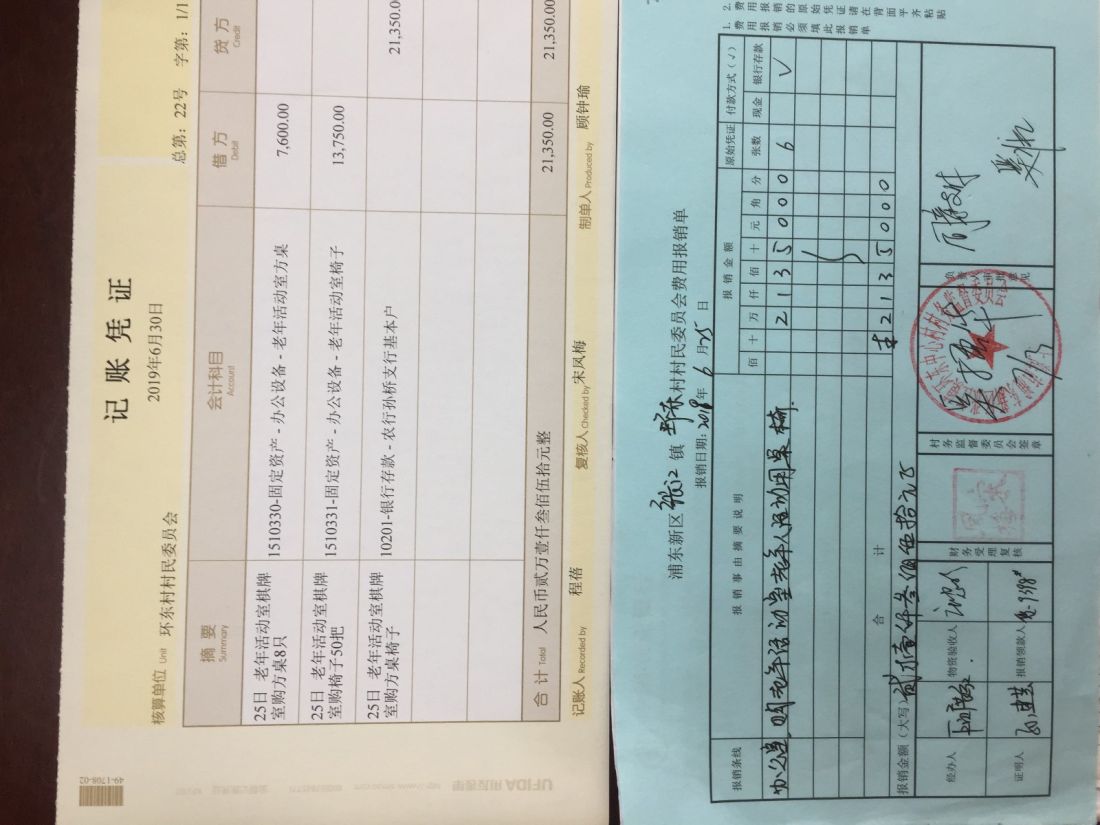 记账凭证
总第：22号 字第：1/1
核算单位 Unit 环东村村民委员会 2019年6月30日
摘要 Summary 会计科目 Account 借方 Debit 贷方 Credit
25日 老年活动室棋牌室购方桌8只 1510330-固定资产 - 办公设备 - 老年活动室方桌 7,600.00
25日 老年活动室棋牌室购椅子50把 1510331-固定资产 - 办公设备 - 老年活动室椅子 13,750.00
25日 老年活动室棋牌室购方桌椅子 10201-银行存款 - 农行孙桥支行基本户 21,350.0
合计 Total 人民币贰万壹仟叁佰伍拾元整 21,350.00 21,350.00
记账人 Recorded by 程蓓 复核人 Checked by 宋凤梅 制单人 Produced by 顾钟瑜
UFIDA 用友表单
浦东新区 张江 镇 环东 村村民委员会费用报销单
报销日期：2019年 6 月 25 日
1. 费用报销必须填此报销单
2. 费用报销的原始凭证请在背面平齐粘贴
报销条线 报销事由摘要说明 报销金额 原始凭证 付款方式（√）
佰 十 万 仟 佰 十 元 角 分 张数 现金 银行存款
办公室 购老年活动室老年人活动用桌椅 2135000 6 √
合计 ¥2135000
报销金额（大写） 贰万壹仟叁佰伍拾元正
经办人 物资验收人 财务受理复核 村务监督委员会签章
证明人 报销领款人